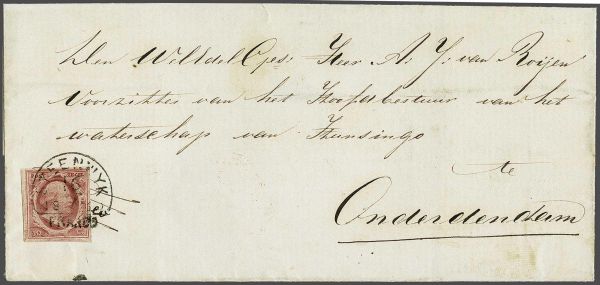 Den WelEdelGes: Heer A: J: van Roijen
Voorzitter van het Hoofdbestuur van het
waterschap van Hunsingo
te
Onderdendam
STEENWYK
FRANCO